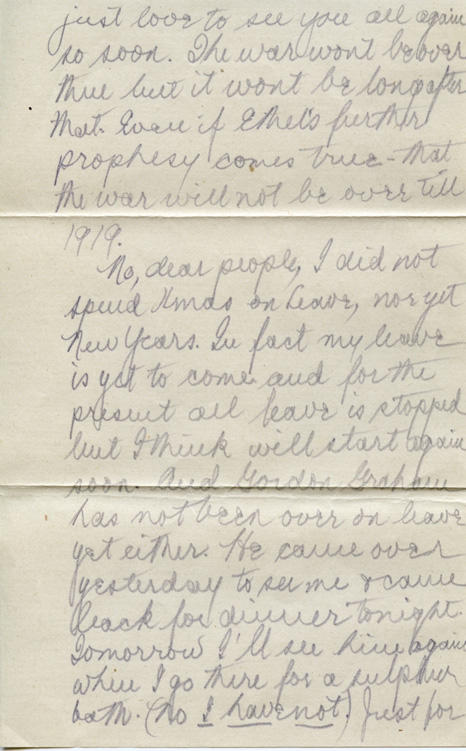 just love to see you all again
so soon. The war wont be over
thue but it wont be long after
that. Even if Ethel's further
prophesy comes true - that
the war will not be over till
1919.
No, dear people, I did not
spend Xmas on Leave, nor yet
New Years. In fact my leave
is yet to come and for the
present all leave is stopped
but I think will start again
soon. And Gordon Graham
has not been over on leave
yet either. He came over
yesterday to see me & came
back for dinner tonight.
Tomorrow I'll see him again
when I go there for a sulphur
bath. (No I have not.) Just for